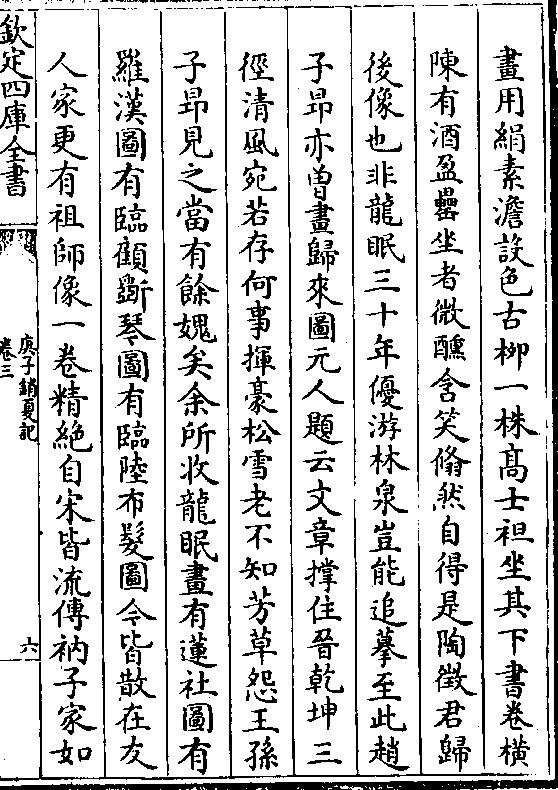 畫用絹素澹設色古柳一株髙士袒坐其下書卷橫
陳有酒盈罍坐者微醺含笑翛然自得是陶徵君歸
後像也非龍眠三十年優游林泉豈能追摹至此趙
子昻亦曽畫歸來圖元人題云文章撑住晉乾坤三
徑清風宛若存何事揮豪松雪老不知芳草怨王孫
子昻見之當有餘媿矣余所收龍眠畫有蓮社圖有
羅漢圖有臨顧斵琴圖有臨陸布髮圖今皆散在友
人家更有祖師像一卷精絶自宋皆流傳衲子家如
欽定四庫全書
庚子銷夏記
卷三
六